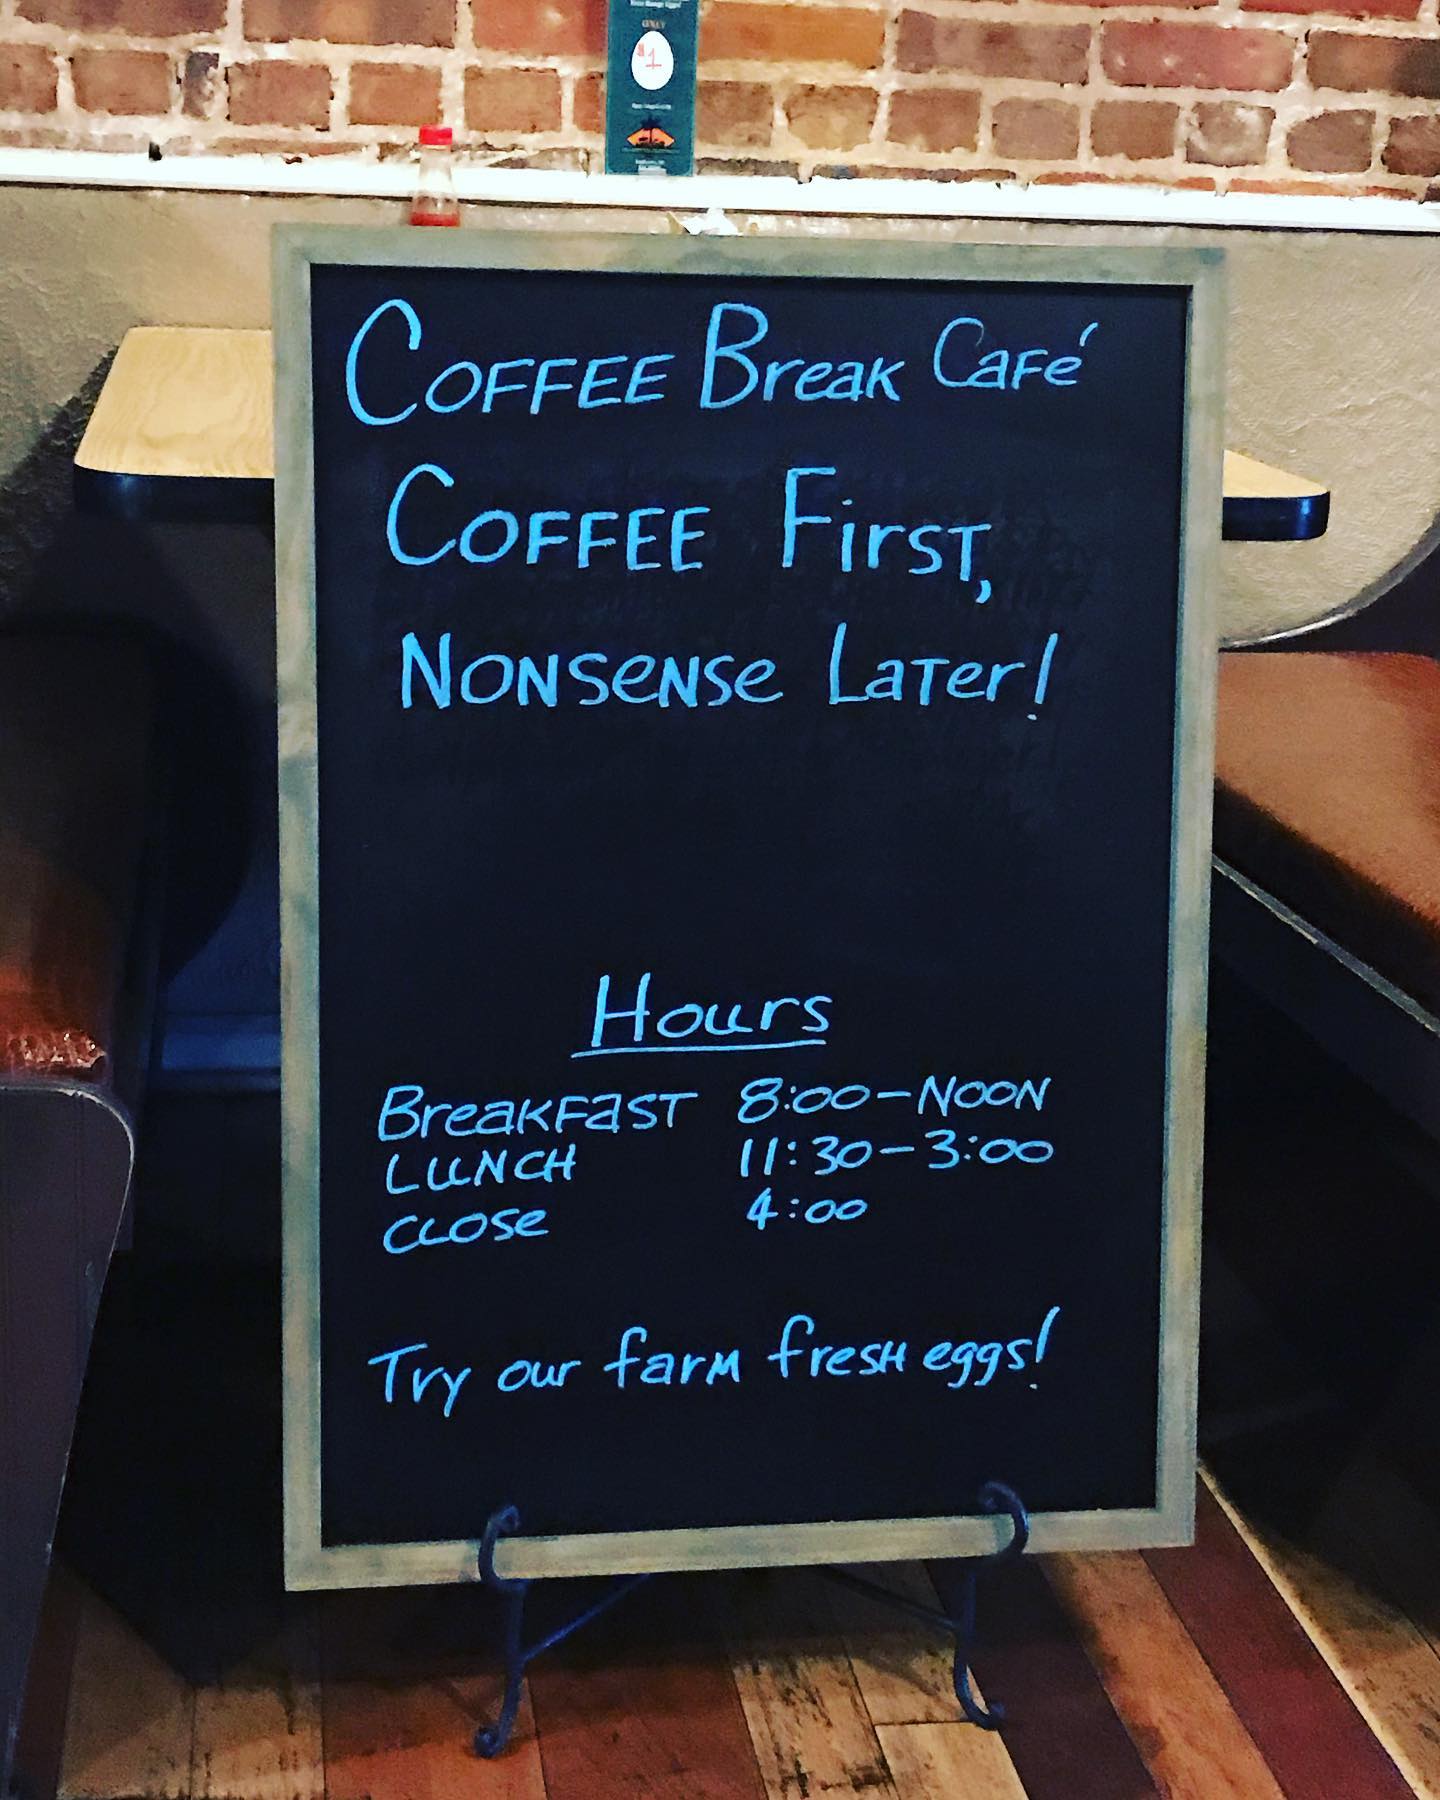 $1
Coffee Break Café
Coffee First,
Nonsense Later!
Hours
Breakfast 8:00-Noon
Lunch 11:30-3:00
Close 4:00
Try our farm fresh eggs!